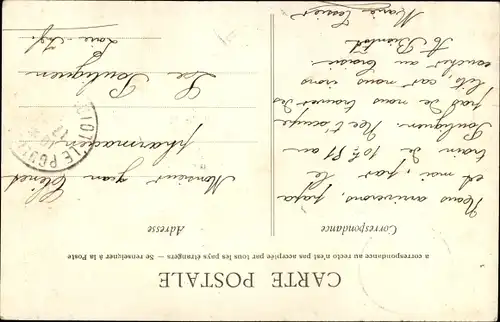 CARTE POSTALE
a correspondance au recto n'est pas acceptée par tous les pays étrangers — Se renseigner à la Poste
Correspondance
Adresse
Nous arriverons, papa
et moi, par le
train de 10h,51 au
Pouliguen. Ne t'occupe
pas de nous trouver des
lits, car nous irons
coucher au
A Bientôt
Marie
Monsieur Jean
pharmacien
Le Pouliguen
Loire-Infre